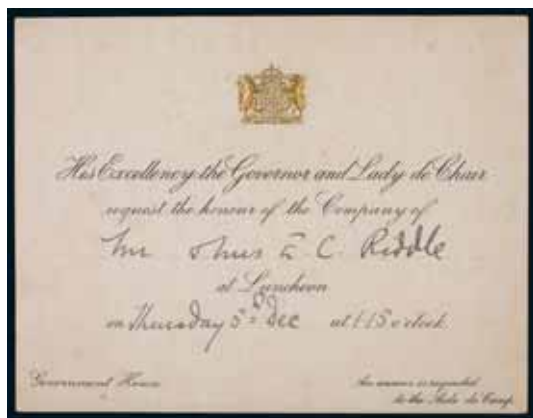 His Excellency the Governor and Lady de Chair
request the honour of the Company of
Mr & C. Riddle
at Luncheon
on Thursday 5th Dec at 1.15 o'clock.
Government House
An answer is requested
to the Aide de Camp.